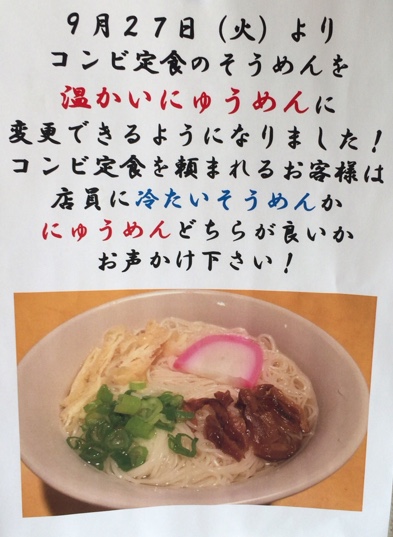 9月27日（火）より
コンビ定食のそうめんを
温かいにゅうめんに
変更できるようになりました！
コンビ定食を頼まれるお客様は
店員に冷たいそうめんか
にゅうめんどちらが良いか
お声かけ下さい！